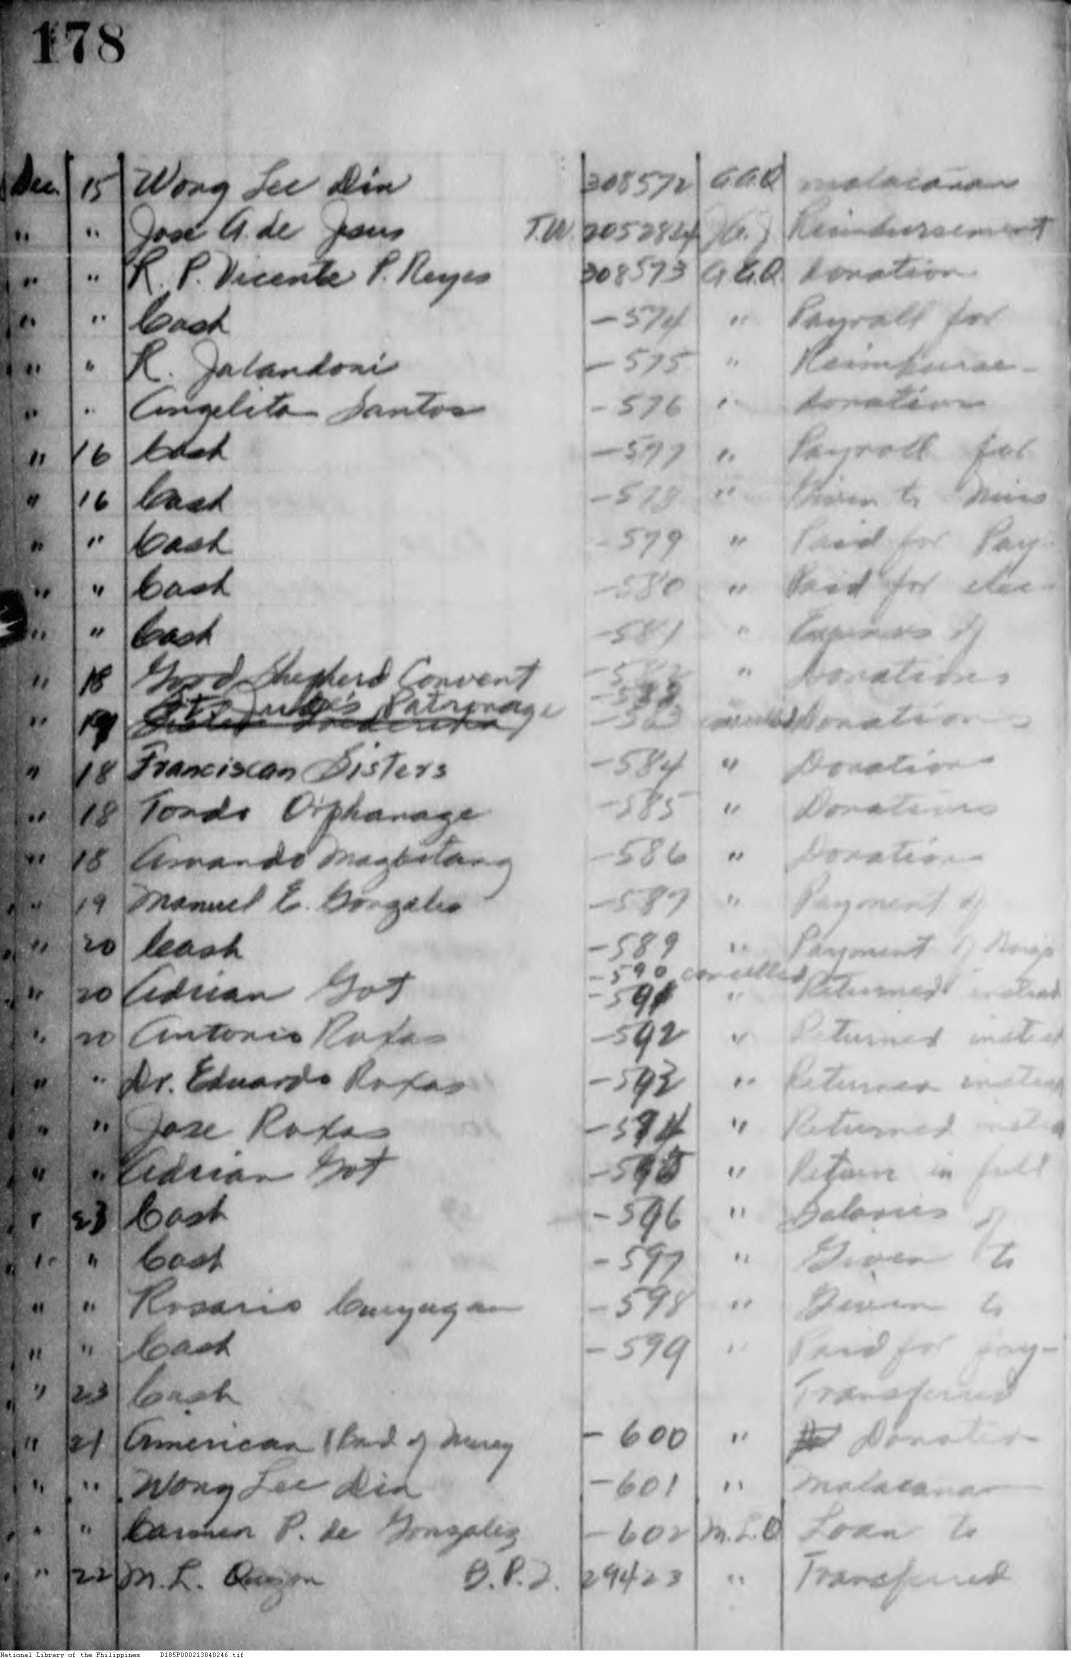 178
Dec. 15 Wong Lee Din 308572 G.G.Q. Malacañan
" " Jose A. de Jesus T.W. 205284 J.G.J Reimbursement
" " R. P. Vicente P. Reyes 308573 G.G.Q. Donation
" " Cash -574 " Payroll for
" " R. Jalandoni -575 " Reimburse-
" " Angelita Santos -576 " Donation
" 16 Cash -577 " Payroll for
" 16 Cash -578 " Given to Miss
" " Cash -579 " Paid for Pay-
" " Cash -580 " Paid for elec-
" " Cash -581 " Expenses of
" 18 Good Shepherd Convent -582 " Donations
Patronage -583 cancelled Donations
" 18 Franciscan Sisters -584 " Donation
" 18 Tondo Orphanage -585 " Donations
" 18 Amando Magbitang -586 " Donation
" 19 Manuel E. Gonzales -587 " Payment of
" 20 Cash -589 " Payment of
-590 cancelled
" 20 Adrian Got -591 " Returned instead
" 20 Antonio Roxas -592 " Returned instead
" " Dr. Eduardo Roxas -593 " Returned instead
" " Jose Roxas -594 " Returned instead
" " Adrian Got -595 " Return in full
" 23 Cash -596 " Salaries of
" " Cash -597 " Given to
" " Rosario Cuyugan -598 " Given to
" " Cash -599 " Paid for pay-
" 23 Cash Transferred
" 21 American of Mercy -600 " Donation
" " Wong Lee Din -601 " Malacañan
" " Carmen P. de Gonzalez -602 M.L.Q Loan to
" 22 M. L. Quezon B.P.I. 29423 " Transferred
National Library of the Philippines D185P000213840246.tif